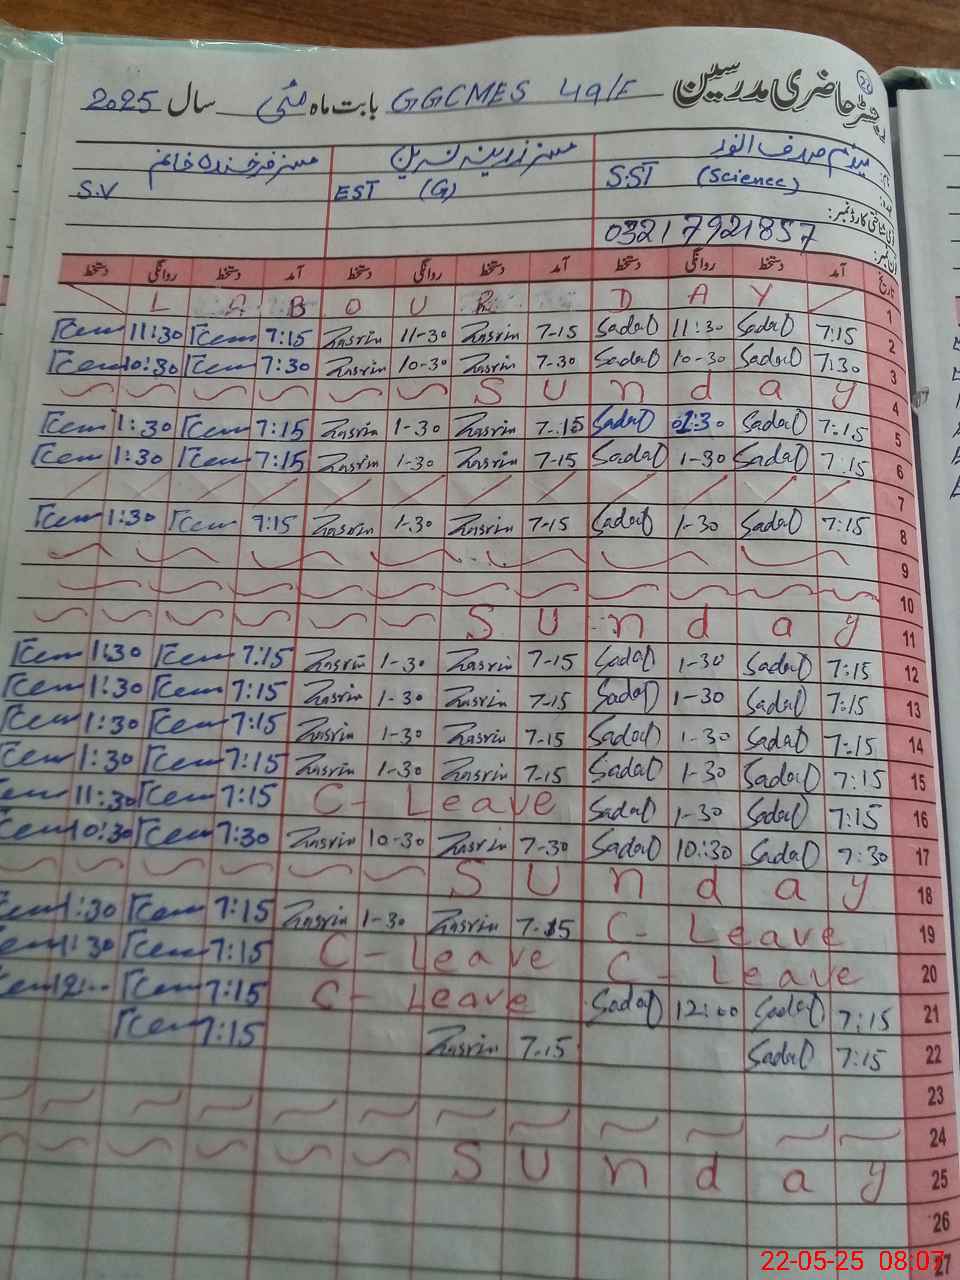 رجسٹر حاضری مدرسین GGCMES 49/F بابت ماہ مئی سال 2025
میڈم صدف انور مسز زرینہ نسرین مسز فرخندہ خانم
S.ST (Science) EST (G) S.V
03217921857
تاریخ آمد دستخط روانگی دستخط آمد دستخط روانگی دستخط آمد دستخط روانگی دستخط
1 L A B O U R D A Y
2 7:15 Sadaf 11:30 Sadaf 7-15 Zasrin 11-30 Zasrin 7:15 11:30
3 7:30 Sadaf 10-30 Sadaf 7-30 Zasrin 10-30 Zasrin 7:30 10:30
4 S U n d a y
5 7:15 Sadaf 01:30 Sadaf 7-15 Zasrin 1-30 Zasrin 7:15 1:30
6 7:15 Sadaf 1-30 Sadaf 7-15 Zasrin 1-30 Zasrin 7:15 1:30
7
8 7:15 Sadaf 1-30 Sadaf 7-15 Zasrin 1-30 Zasrin 7:15 1:30
9
10
11 S U n d a y
12 7:15 Sadaf 1-30 Sadaf 7-15 Zasrin 1-30 Zasrin 7:15 1:30
13 7:15 Sadaf 1-30 Sadaf 7-15 Zasrin 1-30 Zasrin 7:15 1:30
14 7:15 Sadaf 1-30 Sadaf 7-15 Zasrin 1-30 Zasrin 7:15 1:30
15 7:15 Sadaf 1-30 Sadaf 7-15 Zasrin 1-30 Zasrin 7:15 1:30
16 7:15 Sadaf 1-30 Sadaf C- Leave 7:15 11:30
17 7:30 Sadaf 10:30 Sadaf 7-30 Zasrin 10-30 Zasrin 7:30 10:30
18 S U n d a y
19 C- Leave 7-15 Zasrin 1-30 Zasrin 7:15 1:30
20 C- Leave C- Leave 7:15 1:30
21 7:15 Sadaf 12:00 Sadaf C- Leave 7:15
22 7:15 Sadaf 7-15 Zasrin 7:15
23
24
25 S U n d a y
26
27
22-05-25 08:07